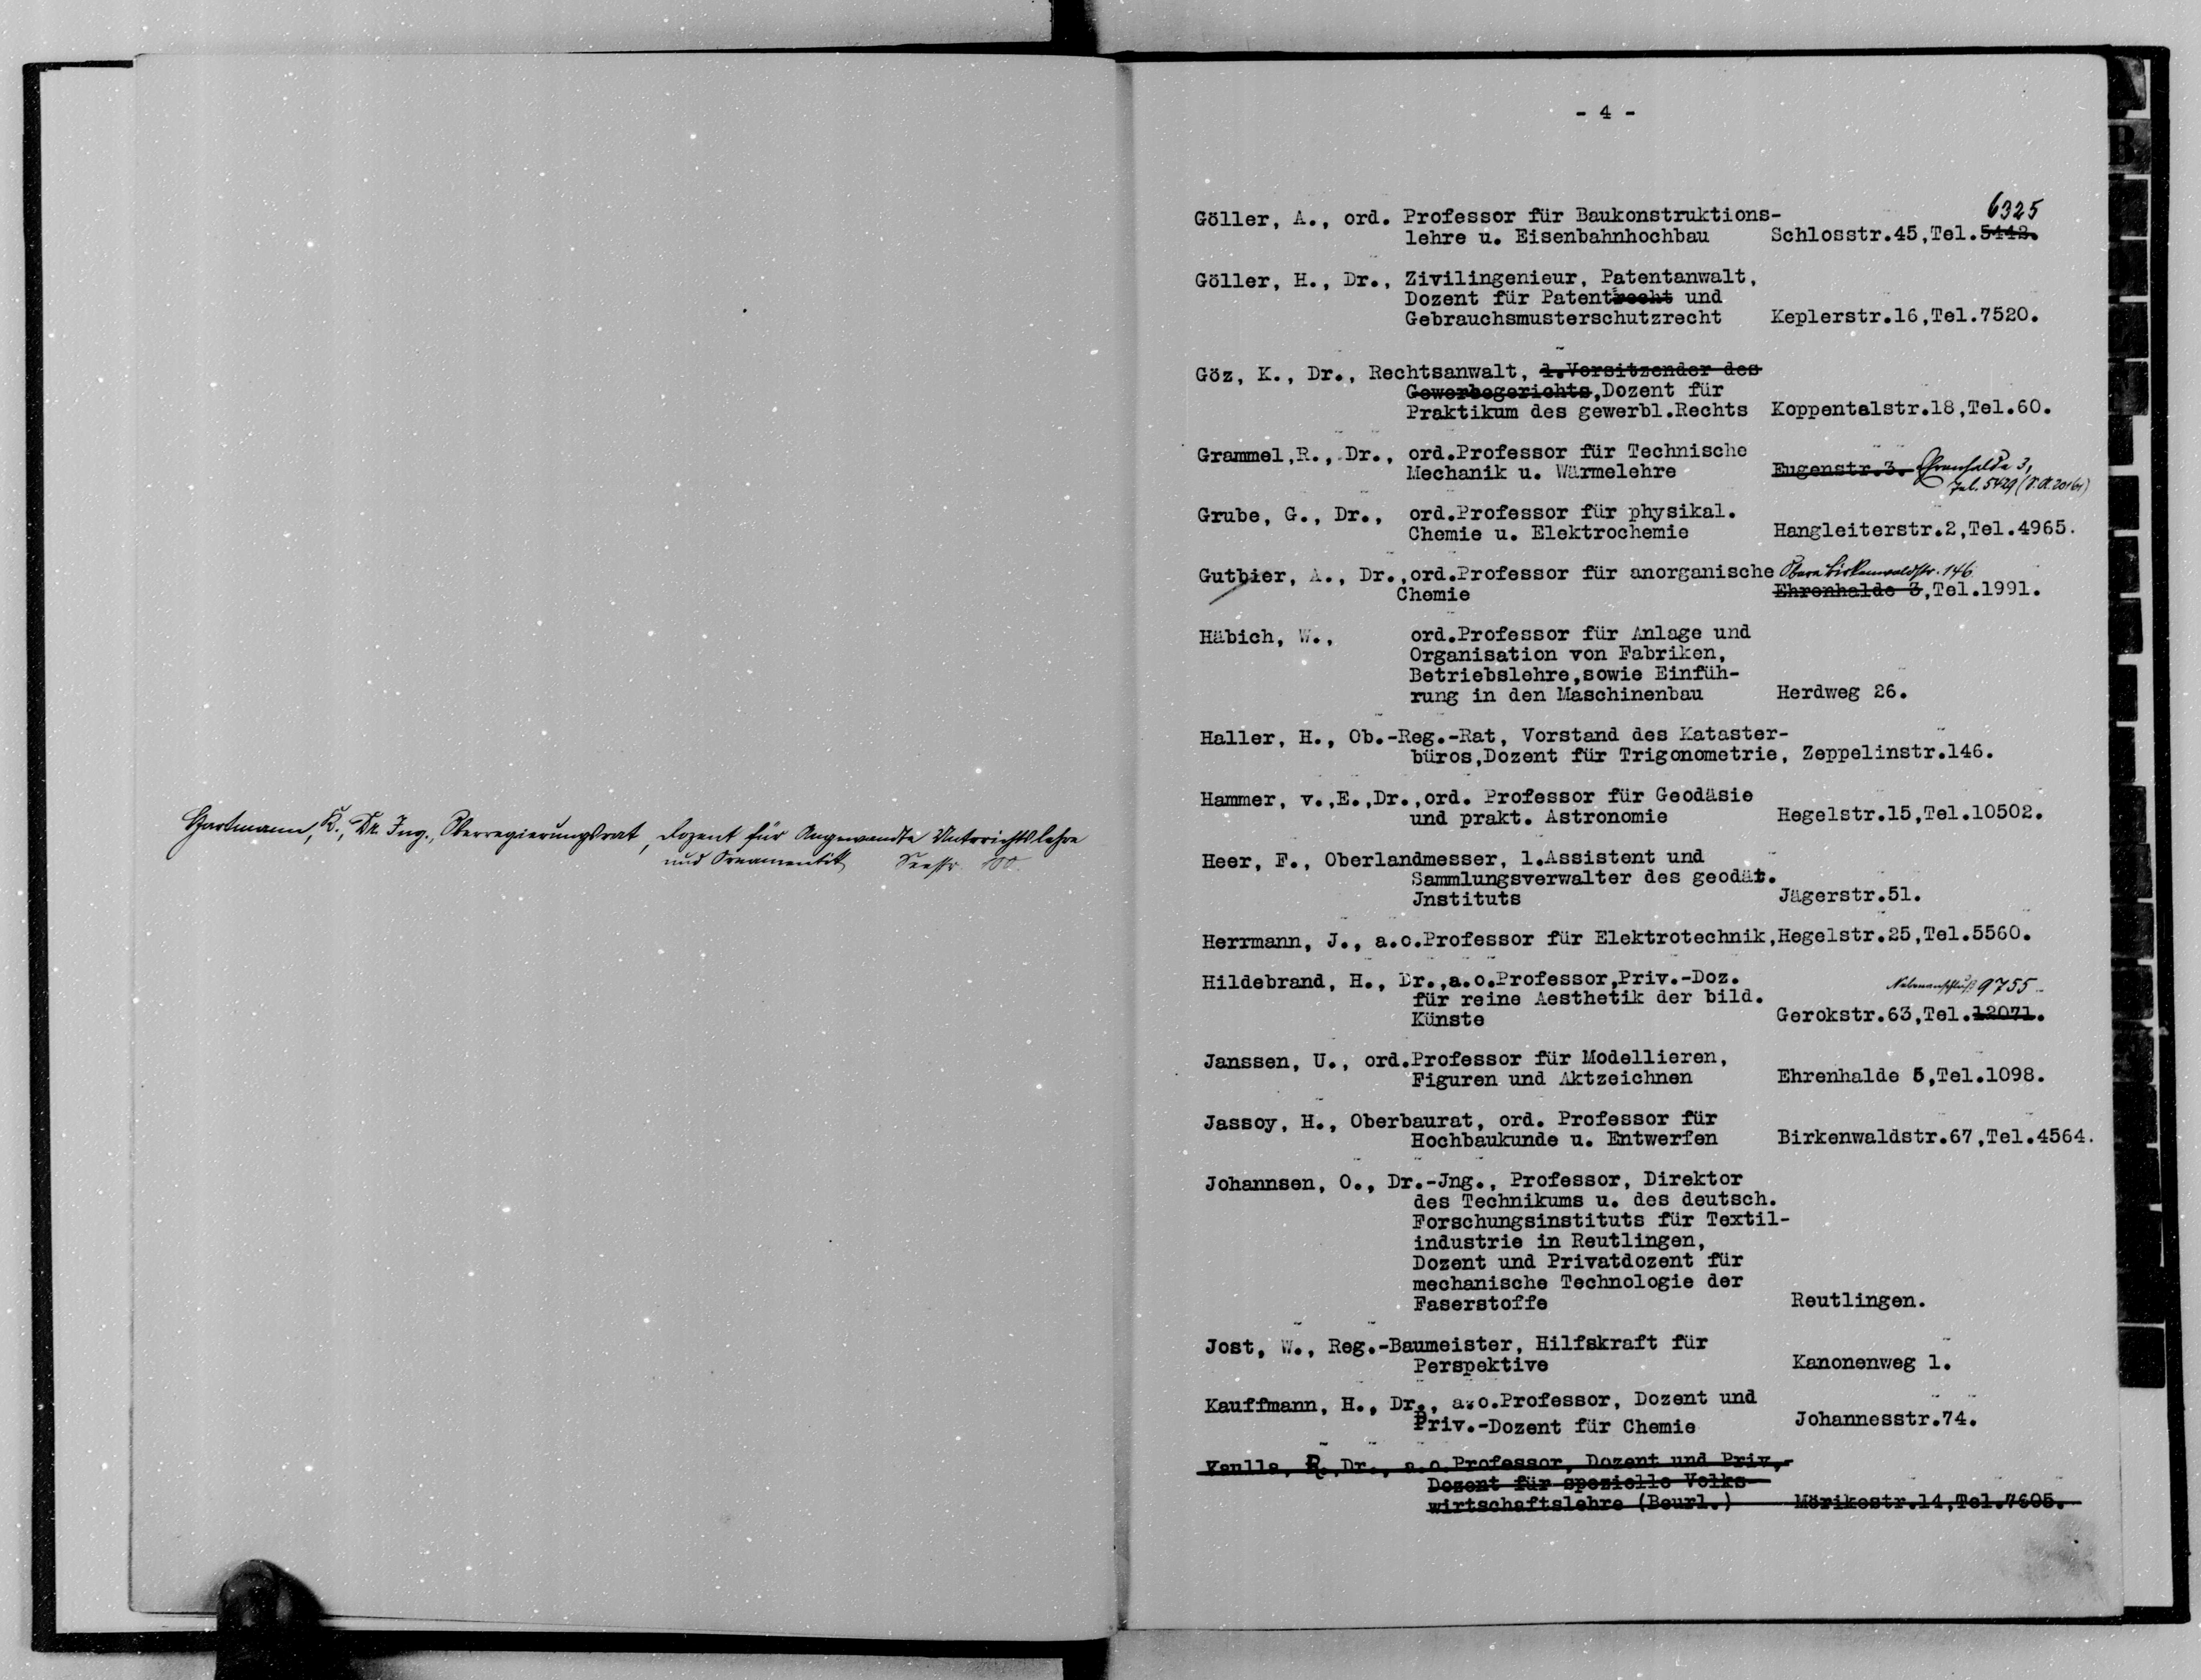 Hartmann, K., Dr. Ing., Oberregierungsrat, Dozent für Angewandte Unterrichtslehre
und Ornamentik Seestr. 100.
- 4 -
6325
Göller, A., ord. Professor für Baukonstruktions-
lehre u. Eisenbahnhochbau Schlosstr.45,Tel.5442.
Göller, H., Dr., Zivilingenieur, Patentanwalt,
Dozent für Patentrecht und
Gebrauchsmusterschutzrecht Keplerstr.16,Tel.7520.
Göz, K., Dr., Rechtsanwalt, 1.Vorsitzender des
Gewerbegerichts,Dozent für
Praktikum des gewerbl.Rechts Koppentalstr.18,Tel.60.
Grammel,R., Dr., ord.Professor für Technische
Mechanik u. Wärmelehre Eugenstr.3. Ehrenhalde 3,
Tel. 5429
Grube, G., Dr., ord.Professor für physikal.
Chemie u. Elektrochemie Hangleiterstr.2,Tel.4965.
Gutbier, A., Dr.,ord.Professor für anorganische Obere Birkenwaldstr. 146
Chemie Ehrenhalde 3,Tel.1991.
Häbich, W., ord.Professor für Anlage und
Organisation von Fabriken,
Betriebslehre,sowie Einfüh-
rung in den Maschinenbau Herdweg 26.
Haller, H., Ob.-Reg.-Rat, Vorstand des Kataster-
büros,Dozent für Trigonometrie, Zeppelinstr.146.
Hammer, v.,E.,Dr.,ord. Professor für Geodäsie
und prakt. Astronomie Hegelstr.15,Tel.10502.
Heer, F., Oberlandmesser, 1.Assistent und
Sammlungsverwalter des geodät.
Jnstituts Jägerstr.51.
Herrmann, J., a.o.Professor für Elektrotechnik,Hegelstr.25,Tel.5560.
Hildebrand, H., Dr.,a.o.Professor,Priv.-Doz. Nebenanschluß 9755
für reine Aesthetik der bild.
Künste Gerokstr.63,Tel.12071.
Janssen, U., ord.Professor für Modellieren,
Figuren und Aktzeichnen Ehrenhalde 5,Tel.1098.
Jassoy, H., Oberbaurat, ord. Professor für
Hochbaukunde u. Entwerfen Birkenwaldstr.67,Tel.4564.
Johannsen, O., Dr.-Jng., Professor, Direktor
des Technikums u. des deutsch.
Forschungsinstituts für Textil-
industrie in Reutlingen,
Dozent und Privatdozent für
mechanische Technologie der
Faserstoffe Reutlingen.
Jost, W., Reg.-Baumeister, Hilfskraft für
Perspektive Kanonenweg 1.
Kauffmann, H., Dr., a.o.Professor, Dozent und
Priv.-Dozent für Chemie Johannesstr.74.
Kaulla, R.,Dr., a.o.Professor, Dozent und Priv.-
Dozent für spezielle Volks-
wirtschaftslehre (Beurl.) Mörikestr.14,Tel.7605.
B